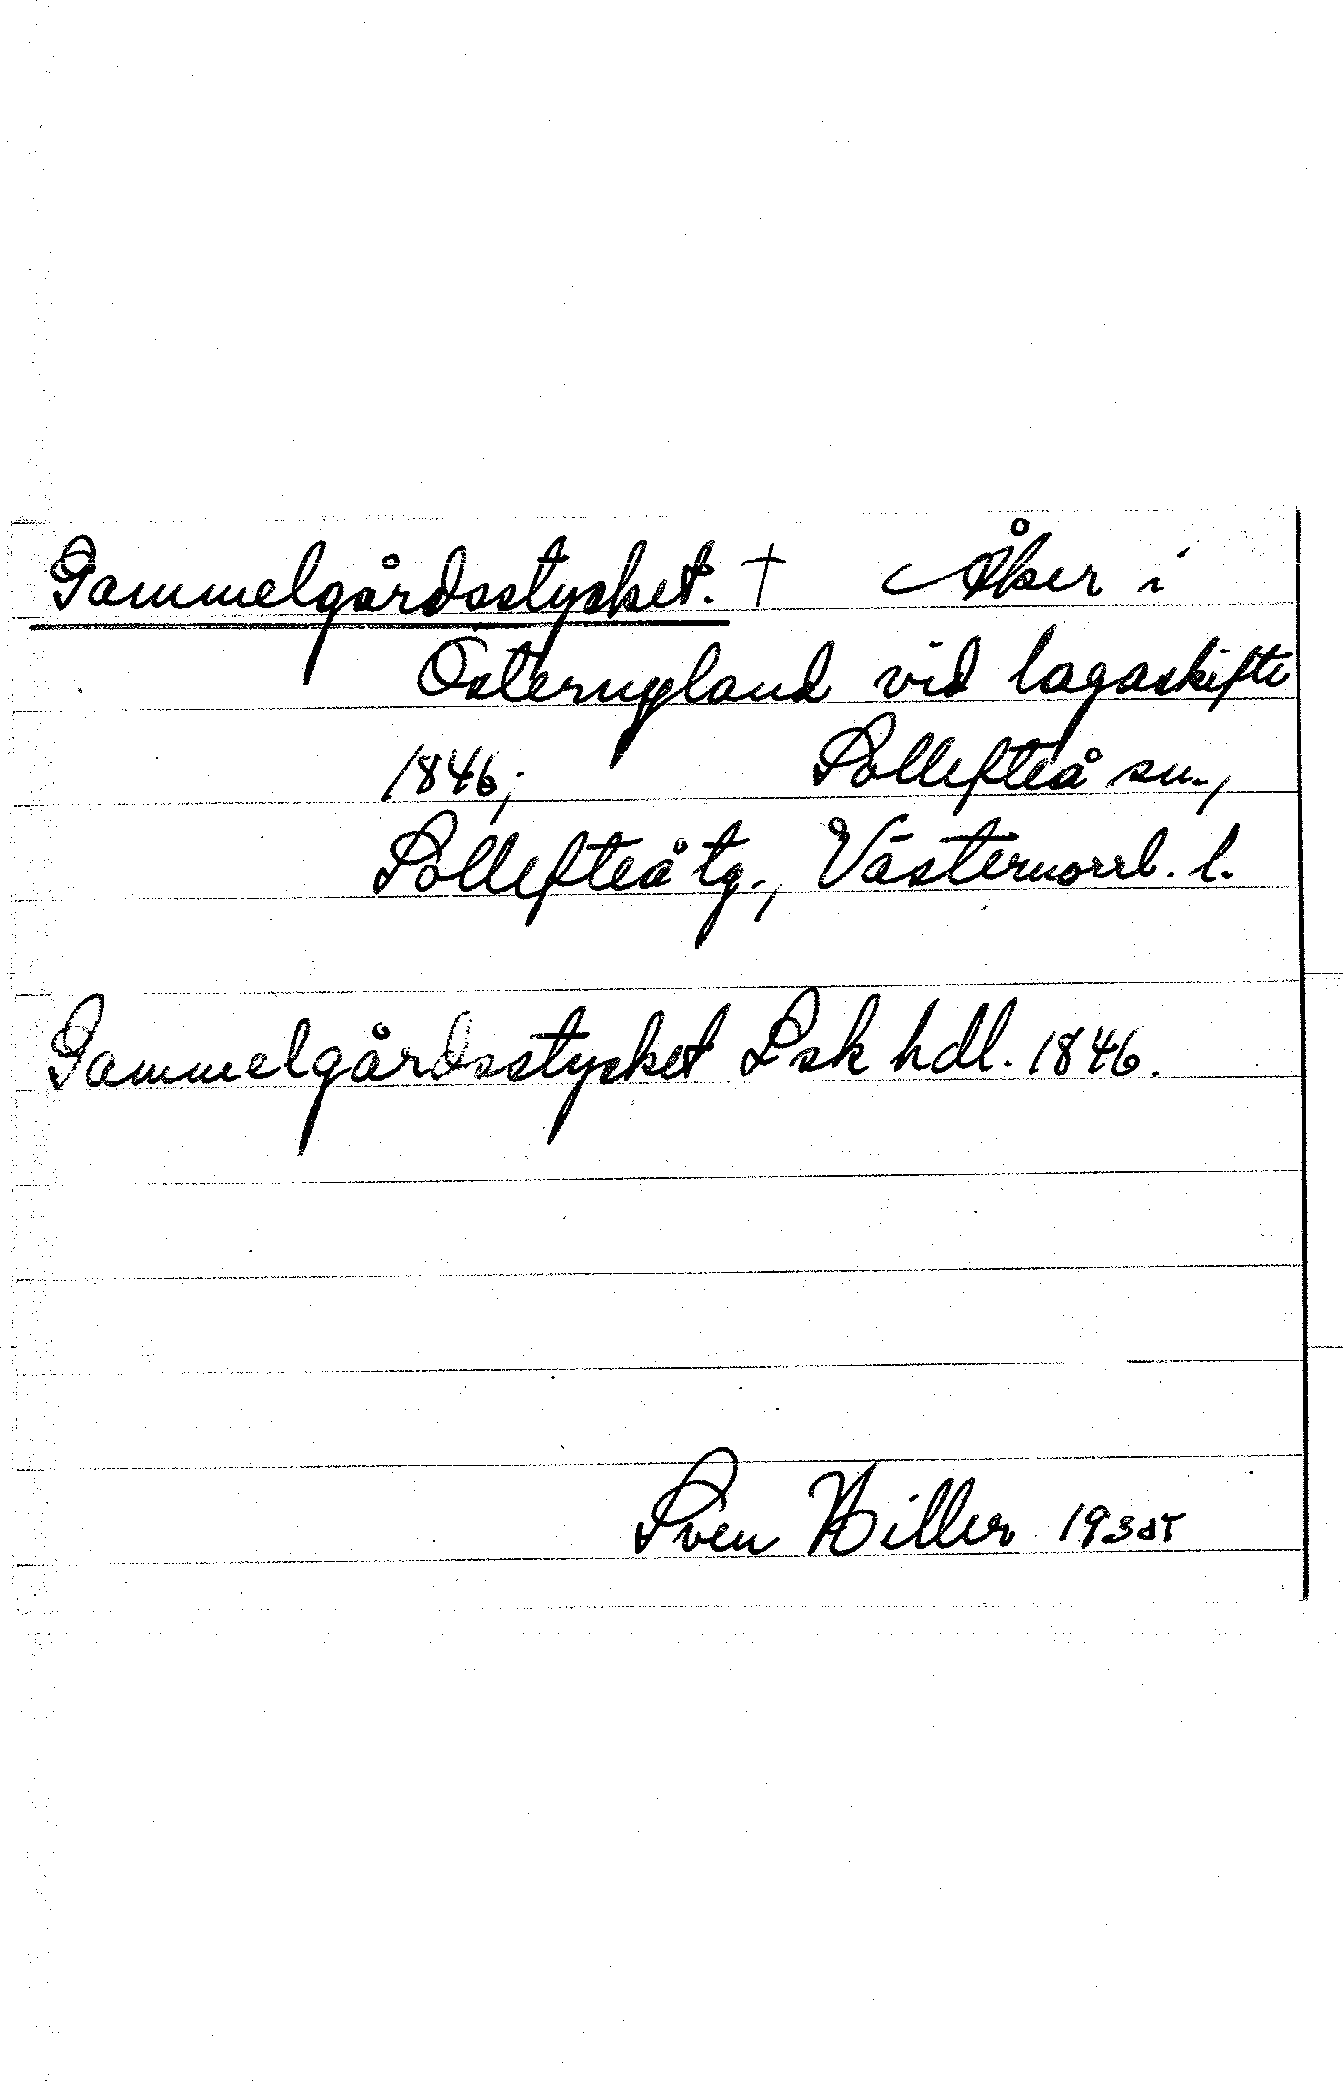 Gammelgårdsstycket. † Åker i
Östernyland vid lagaskifte
1846; Sollefteå sn.,
Sollefteå tg., Västernorrl. l.
Gammelgårdsstycket Lsk hdl. 1846.
Sven Hiller 1935